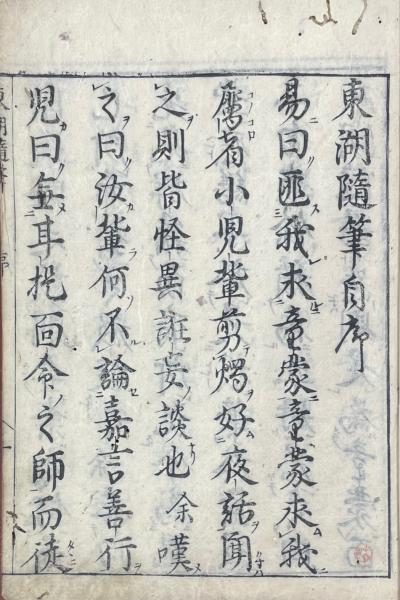 東湖隨筆自序
易曰匪我求童蒙童蒙求我
屬者小児輩剪燭好夜話聞
之則皆怪異誑妄談也余嘆
之曰汝輩何不論嘉言善行
児曰無耳提面命之師而徒